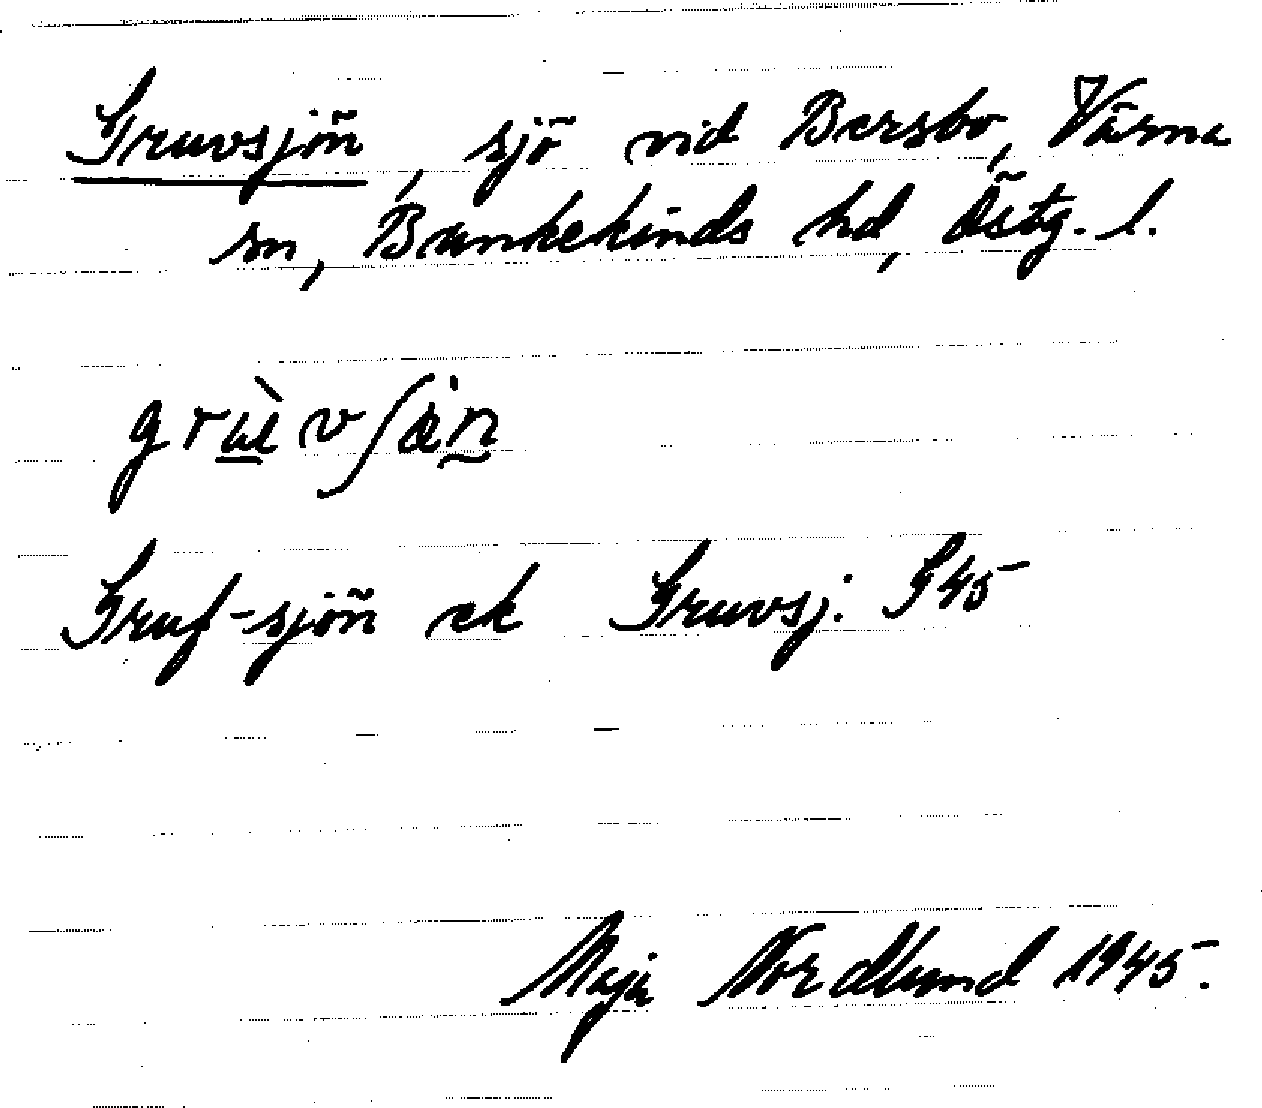 Gruvsjön, sjö vid Bersbo, Värna
sn, Bankekinds hd, Östg. l.
Gruf-sjön ek Gruvsj. G 45
Maja Nordlund 1945.